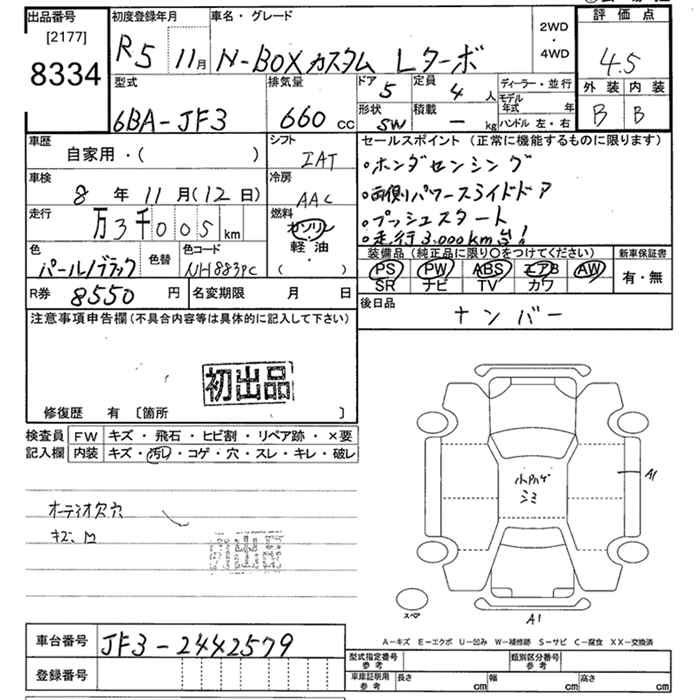 出品番号
[2177]
8334
初度登録年月
R5 11月
車名・グレード
N-BOXカスタム Lターボ
2WD
・
4WD
評価点
4.5
外装 内装
B B
型式
6BA-JF3
排気量
660 cc
ドア
5
定員
4 人
形状
SW
積載
― kg
ディーラー・並行
モデル年式 年
ハンドル 左・右
車歴
自家用・( )
シフト
IAT
車検
8 年 11 月 (12 日)
冷房
AAC
走行
万3千005 km
燃料
ガソリン
軽・油
( )
色
パールブラック
色替
色コード
NH883PC
R券 8550 円
名変期限 月 日
セールスポイント (正常に機能するものに限ります)
・ホンダセンシング
・両側パワースライドドア
・プッシュスタート
・走行3,000km台!
装備品 (純正品に限り○をつけてください)
PS PW ABS エアB AW
SR ナビ TV カワ
新車保証書
有・無
後日品
ナンバー
注意事項申告欄 (不具合内容等は具体的に記入して下さい)
初出品
修復歴 有 〔箇所 〕
検査員
記入欄
FW キズ・飛石・ヒビ割・リペア跡・×要
内装 キズ・汚レ・コゲ・穴・スレ・キレ・破レ
オーディオ欠穴
シミ
A1
スペア
A1
A-キズ E-エクボ U-凹み W-補修跡 S-サビ C-腐食 XX-交換済
車台番号 JF3-2442579
登録番号
型式指定番号
参考
類別区分番号
参考
車庫証明用
参考
長さ cm 幅 cm 高さ cm